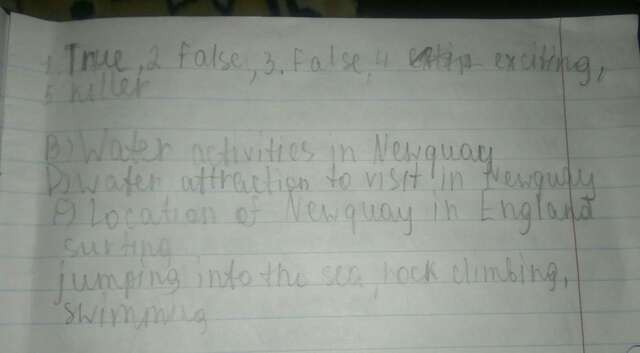 1. True, 2 False, 3. False, 4 exciting,
5 killer
B) Water activities in Newquay
D) water attraction to visit in Newquay
A) Location of Newquay in England
surting
jumping into the sea, rock climbing,
swimming